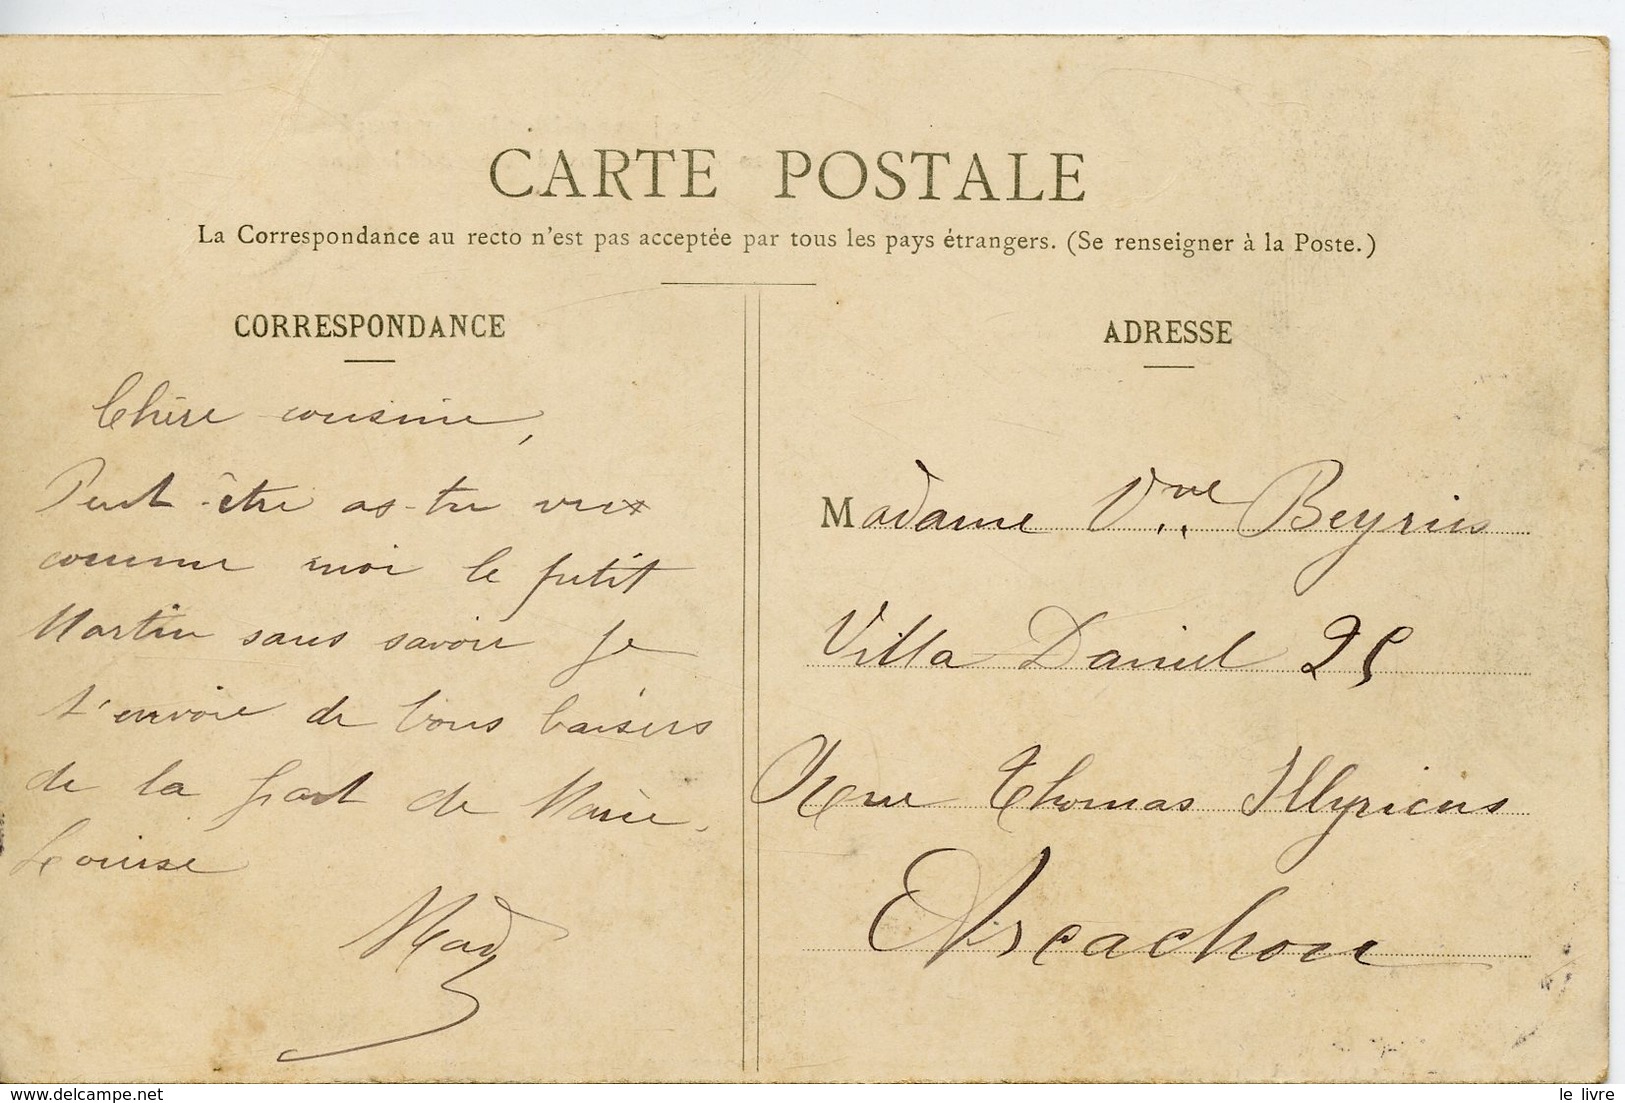 CARTE POSTALE
La Correspondance au recto n'est pas acceptée par tous les pays étrangers. (Se renseigner à la Poste.)
CORRESPONDANCE
Chère cousine,
Peut-être as-tu vu
comme moi le petit
Martin sans savoir je
t'envoie de bons baisers
de la part de Marie-
Louise
Mad
ADRESSE
Madame Vve Beyries
Villa Daniel 25
Rue Thomas Illyricus
Arcachon
le livre